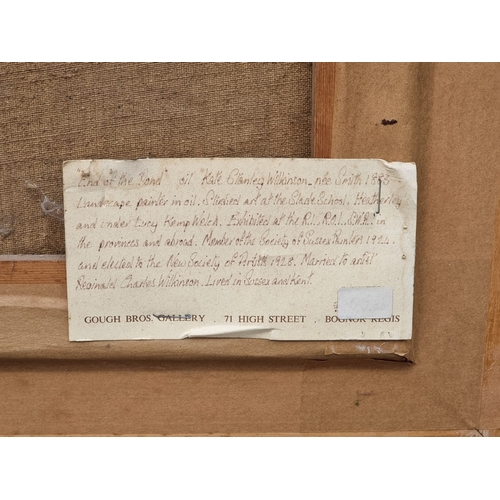 "End of the Road" oil Kate Stanley Wilkinson nee Smith 1883-
Landscape painter in oil. Studied art at the Slade School. Heatherley
and under Lucy Kemp Welch. Exhibited at the R.I., R.O.I., S.W.A. in
the provinces and abroad. Member of the Society of Sussex Painters 1924
and elected to the New Society of Artists 1928. Married to artist
Reginald Charles Wilkinson. Lived in Sussex and Kent.
GOUGH BROS. GALLERY . 71 HIGH STREET . BOGNOR REGIS